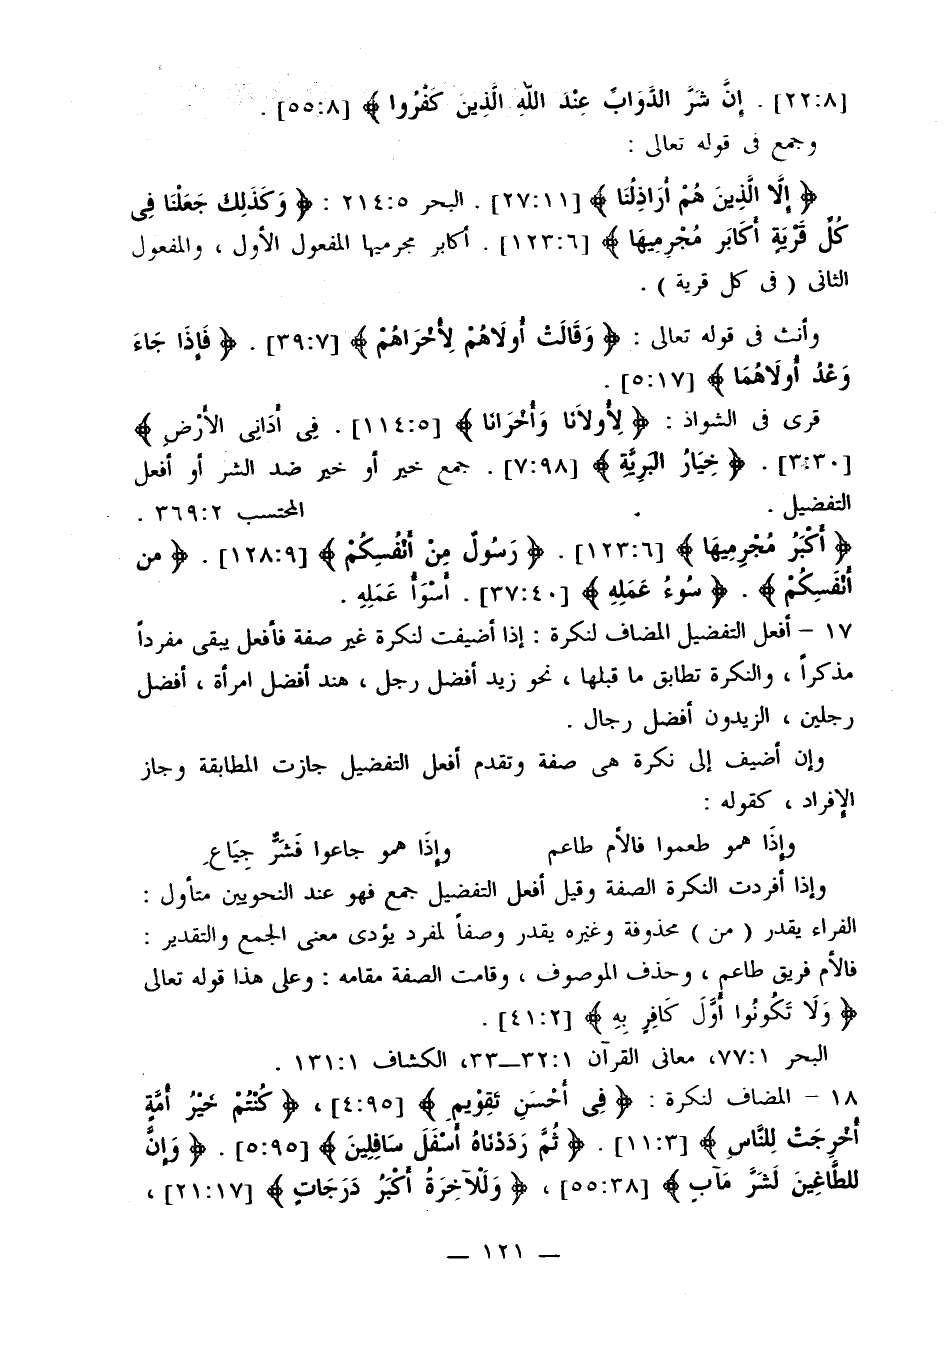 [٢٢:٨] . إِنَّ شَرَّ الدَّوَابِّ عِنْدَ اللهِ الَّذِينَ كَفَرُوا ﴾ [٥٥:٨] .
وجمع فى قوله تعالى :
﴿ إِلَّا الَّذِينَ هُمْ أَرَاذِلُنَا ﴾ [٢٧:١١] . البحر ٢١٤:٥ : ﴿ وَكَذَلِكَ جَعَلْنَا فِى
كُلِّ قَرْيَةٍ أَكَابِرَ مُجْرِمِيهَا ﴾ [١٢٣:٦] . أكابر مجرميها المفعول الأول ، والمفعول
الثانى ( فى كل قرية ) .
وأنث فى قوله تعالى : ﴿ وَقَالَتْ أُولَاهُمْ لِأُخْرَاهُمْ ﴾ [٣٩:٧] . ﴿ فَإِذَا جَاءَ
وَعْدُ أُولَاهُمَا ﴾ [٥:١٧] .
قرى فى الشواذ : ﴿ لِأُولاَنَا وَأُخْرَانَا ﴾ [١١٤:٥] . فِى أَدَانِى الأَرْضِ ﴾
[٣:٣٠] . ﴿ خِيَارُ البَرِيَّةِ ﴾ [٧:٩٨] . جمع خير أو خير ضد الشر أو أفعل
التفضيل . المحتسب ٣٦٩:٢ .
﴿ أَكْبَرُ مُجْرِمِيهَا ﴾ [١٢٣:٦] . ﴿ رَسُولٌ مِنْ أَنْفُسِكُمْ ﴾ [١٢٨:٩] . ﴿ من
أَنْفَسِكُمْ ﴾ . ﴿ سُوءُ عَمَلِهِ ﴾ [٣٧:٤٠] . أَسْوَأُ عَمَلِهِ .
١٧ – أفعل التفضيل المضاف لنكرة : إذا أضيفت لنكرة غير صفة فأفعل يبقى مفرداً
مذكراً ، والنكرة تطابق ما قبلها ، نحو زيد أفضل رجل ، هند أفضل امرأة ، أفضل
رجلين ، الزيدون أفضل رجال .
وإن أضيف إلى نكرة هى صفة وتقدم أفعل التفضيل جازت المطابقة وجاز
الإفراد ، كقوله :
وإِذَا همو طعموا فالأم طاعم وإِذَا همو جاعوا فَشَرُّ جِيَاع ِ
وإذا أفردت النكرة الصفة وقيل أفعل التفضيل جمع فهو عند النحويين متأول :
الفراء يقدر ( من ) محذوفة وغيره يقدر وصفاً لمفرد يؤدى معنى الجمع والتقدير :
فالأم فريق طاعم ، وحذف الموصوف ، وقامت الصفة مقامه : وعلى هذا قوله تعالى
﴿ وَلَا تَكُونُوا أَوَّلَ كَافِرٍ بِهِ ﴾ [٤١:٢] .
البحر ٧٧:١، معانى القرآن ٣٢:١—٣٣، الكشاف ١٣١:١ .
١٨ – المضاف لنكرة : ﴿ فِى أَحْسَنِ تَقْوِيمٍ ﴾ [٤:٩٥] ، ﴿ كُنْتُمْ خَيْرُ أُمَّةٍ
أُخْرِجَتْ لِلنَّاسِ ﴾ [١١:٣] . ﴿ ثُمَّ رَدَدْنَاهُ أَسْفَلَ سَافِلِينَ ﴾ [٥:٩٥] . ﴿ وَإِنَّ
للطَّاغِينَ لَشَرَّ مَآبٍ ﴾ [٥٥:٣٨] ، ﴿ وَلَلْآخِرَةُ أَكْبَرُ دَرَجَاتٍ ﴾ [٢١:١٧] ،
— ١٢١ —